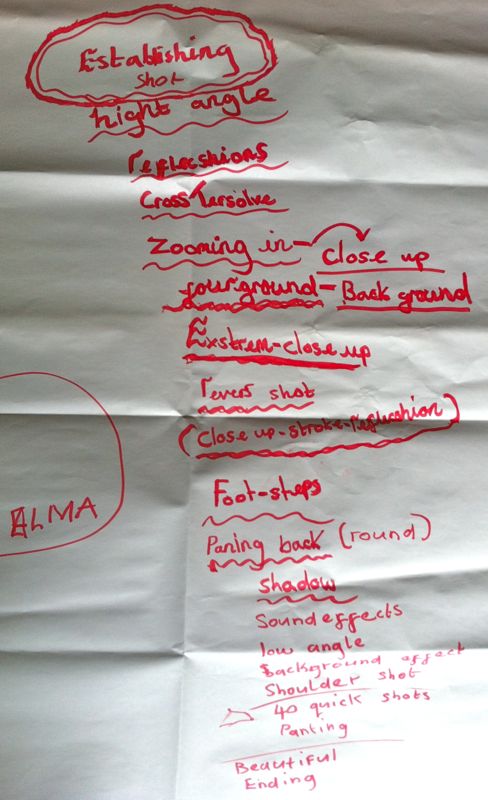 Establishing
shot
hight angle
reflecshions
Cross Tersolve
Zooming in - Close up
fourground - Back ground
Exstrem-close up
revers shot
(Close up-stroke-reflecshion)
ALMA
Foot-steps
Paning back (round)
shadow
Sound effects
low angle
Background effect
Shoulder shot
40 quick shots
Panting
Beautiful
Ending